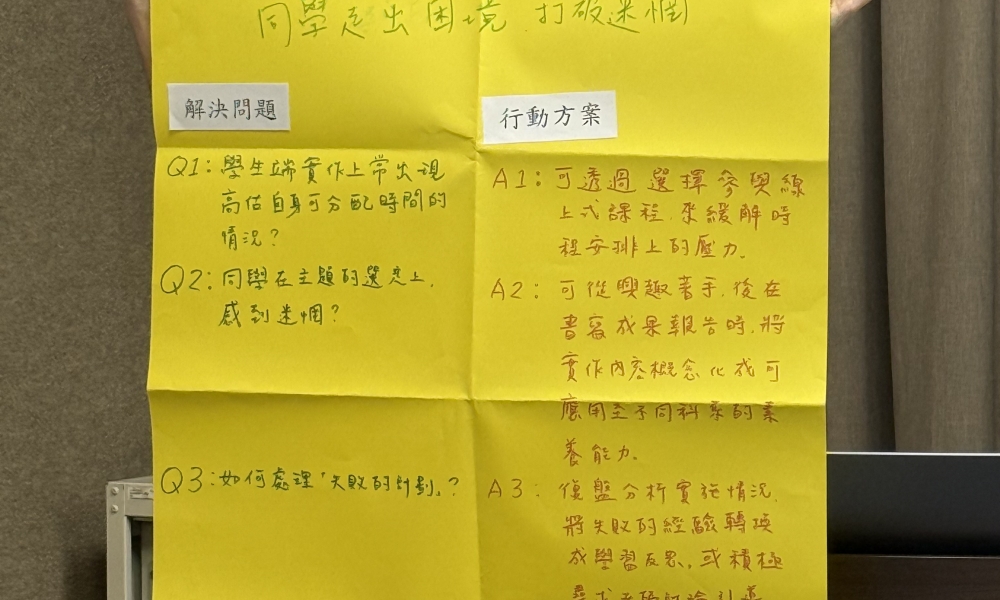 同學走出困境 打破迷惘
解決問題
行動方案
Q1：學生端實作上常出現
高估自身可分配時間的
情況？
Q2：同學在主題的選定上，
感到迷惘？
Q3：如何處理「失敗的計劃」？
A1：可透過選擇參與線
上式課程，來緩解時
程安排上的壓力。
A2：可從興趣著手，後在
書寫成果報告時，將
實作內容概念化成可
應用至不同科系的素
養能力。
A3：復盤分析實施情況，
將失敗的經驗轉換
成學習反思，或積極
尋求老師討論引導